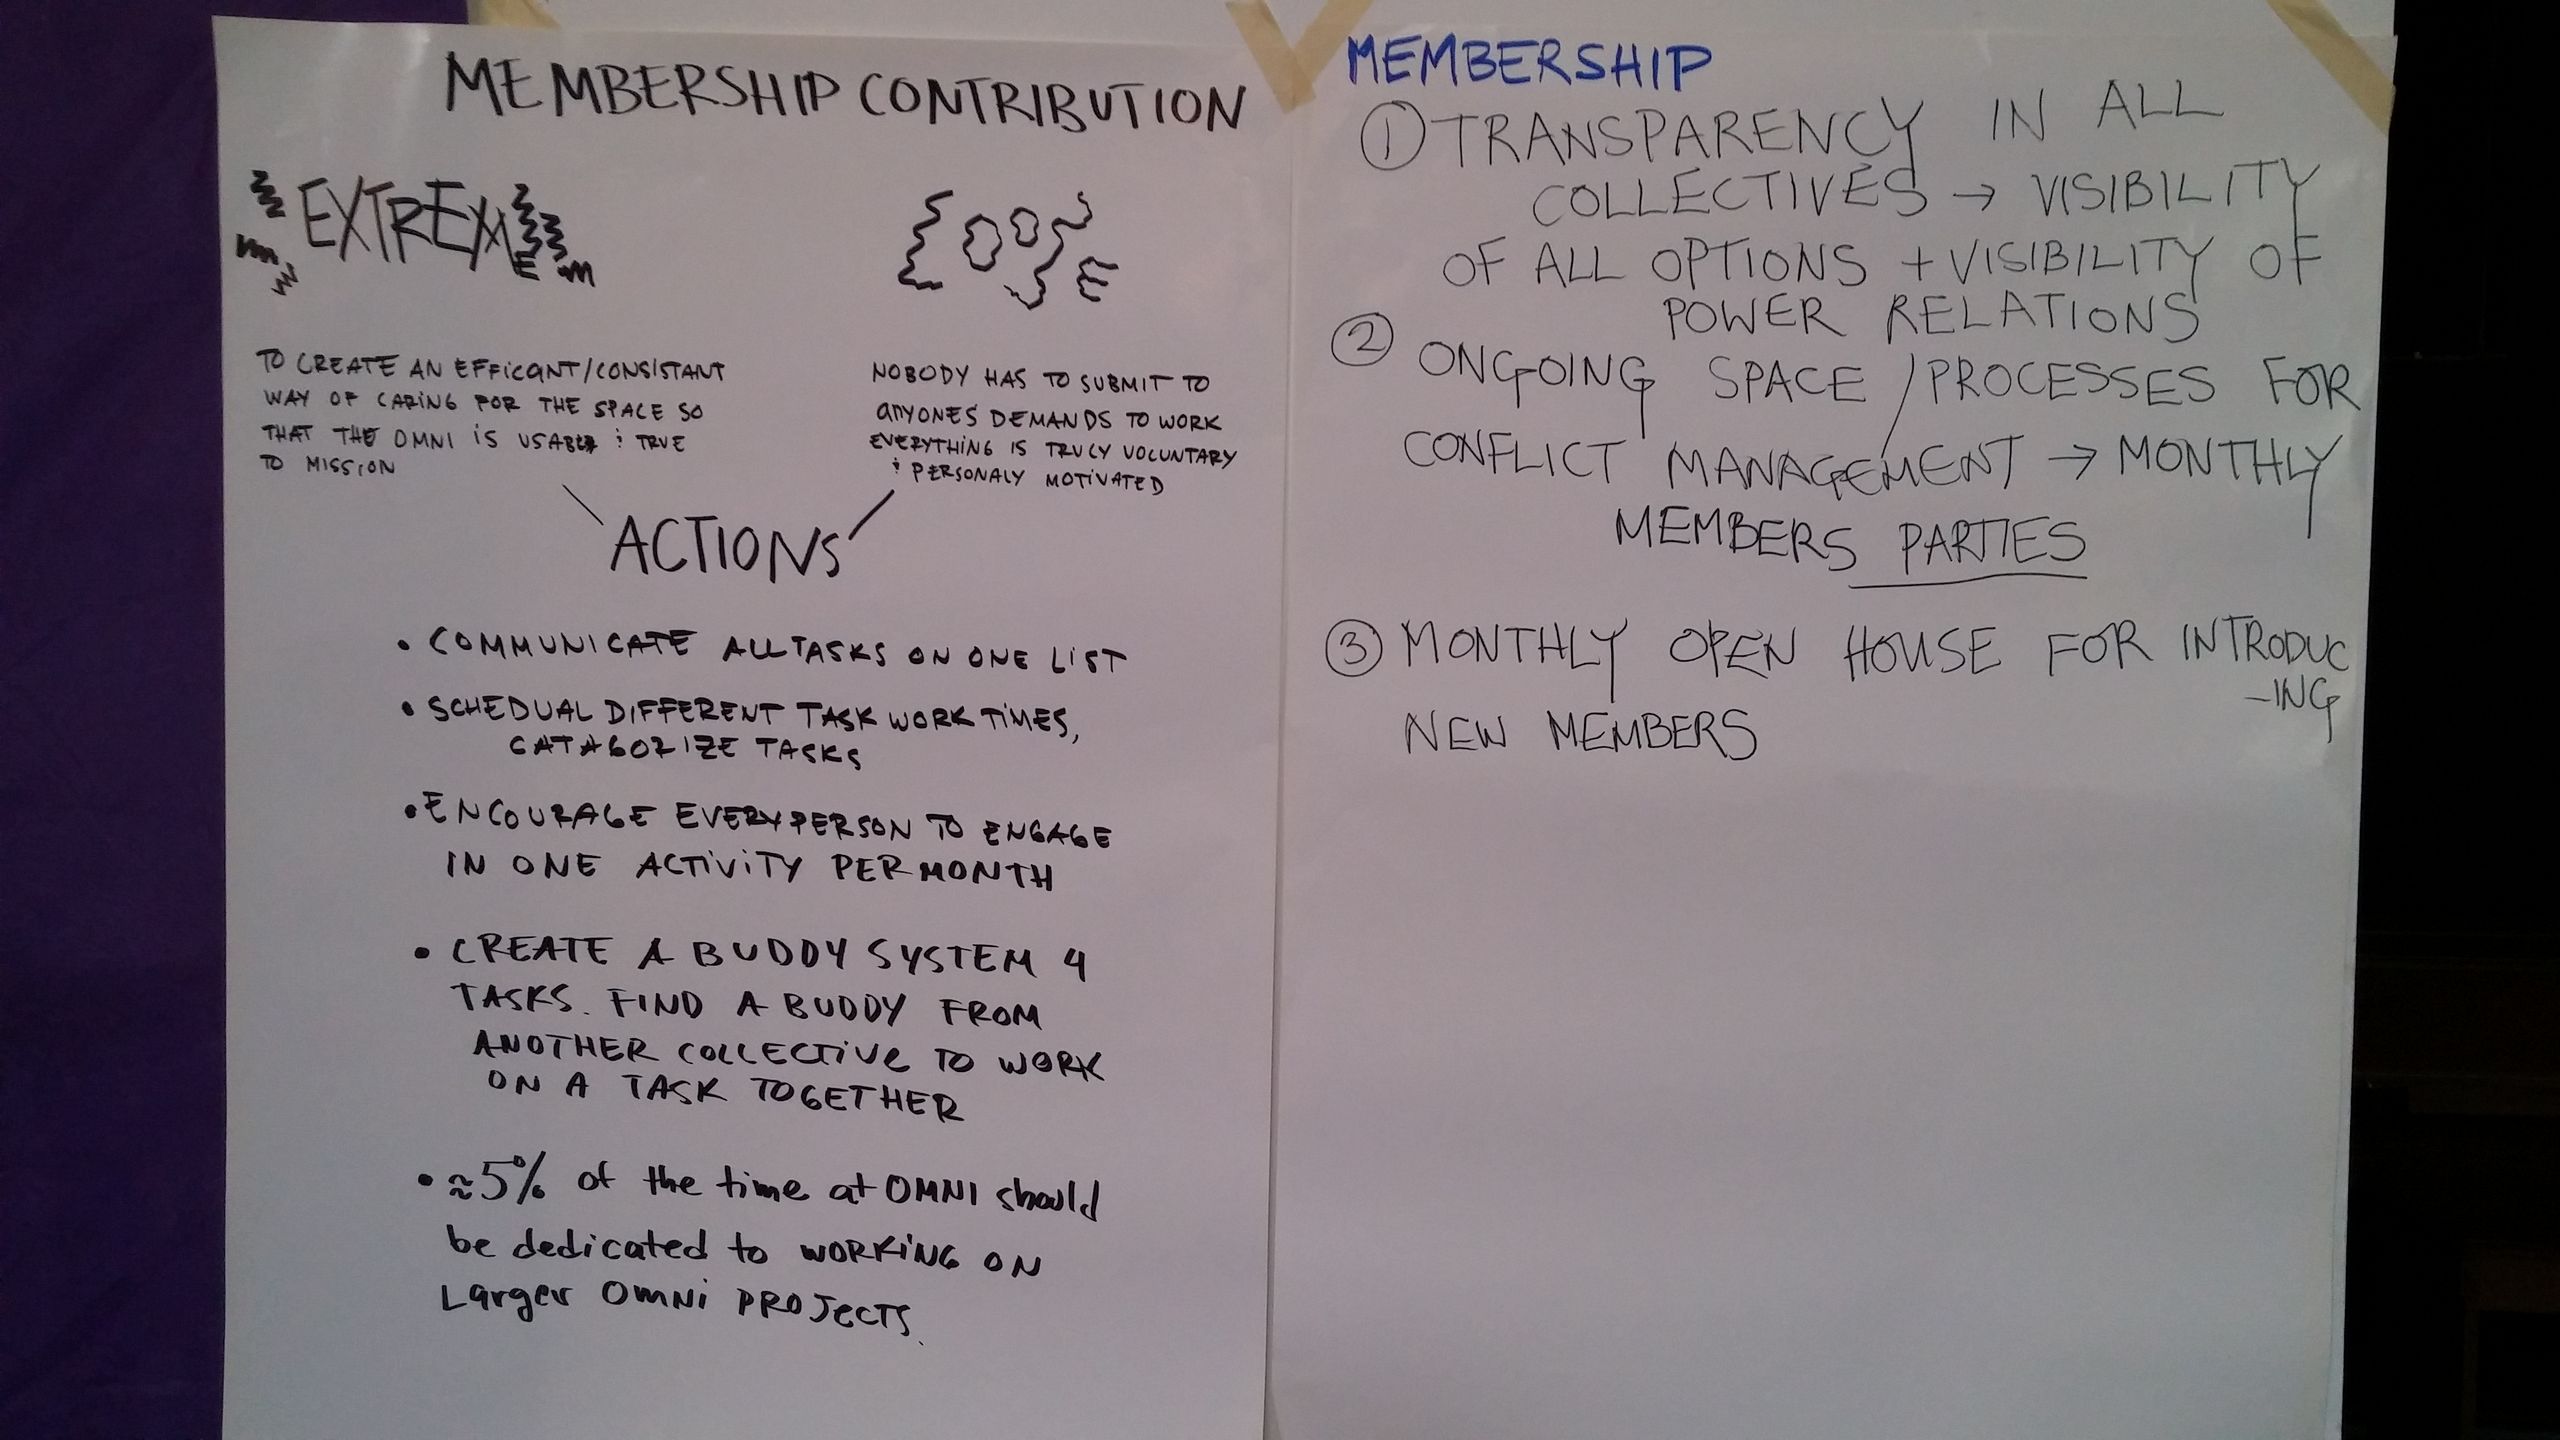 MEMBERSHIP CONTRIBUTION
EXTREME
LOOSE
TO CREATE AN EFFICANT/CONSISTANT
WAY OF CARING FOR THE SPACE SO
THAT THE OMNI IS USABLE & TRUE
TO MISSION
NOBODY HAS TO SUBMIT TO
ANYONES DEMANDS TO WORK
EVERYTHING IS TRULY VOLUNTARY
& PERSONALY MOTIVATED
ACTIONS
• COMMUNICATE ALL TASKS ON ONE LIST
• SCHEDUAL DIFFERENT TASK WORK TIMES,
CATAGORIZE TASKS
• ENCOURAGE EVERY PERSON TO ENGAGE
IN ONE ACTIVITY PER MONTH
• CREATE A BUDDY SYSTEM 4
TASKS. FIND A BUDDY FROM
ANOTHER COLLECTIVE TO WORK
ON A TASK TOGETHER
• ≈5% of the time at OMNI should
be dedicated to WORKING ON
Larger Omni PROJECTS.
MEMBERSHIP
① TRANSPARENCY IN ALL
COLLECTIVES → VISIBILITY
OF ALL OPTIONS + VISIBILITY OF
POWER RELATIONS
② ONGOING SPACE / PROCESSES FOR
CONFLICT MANAGEMENT → MONTHLY
MEMBERS PARTIES
③ MONTHLY OPEN HOUSE FOR INTRODUC
-ING
NEW MEMBERS